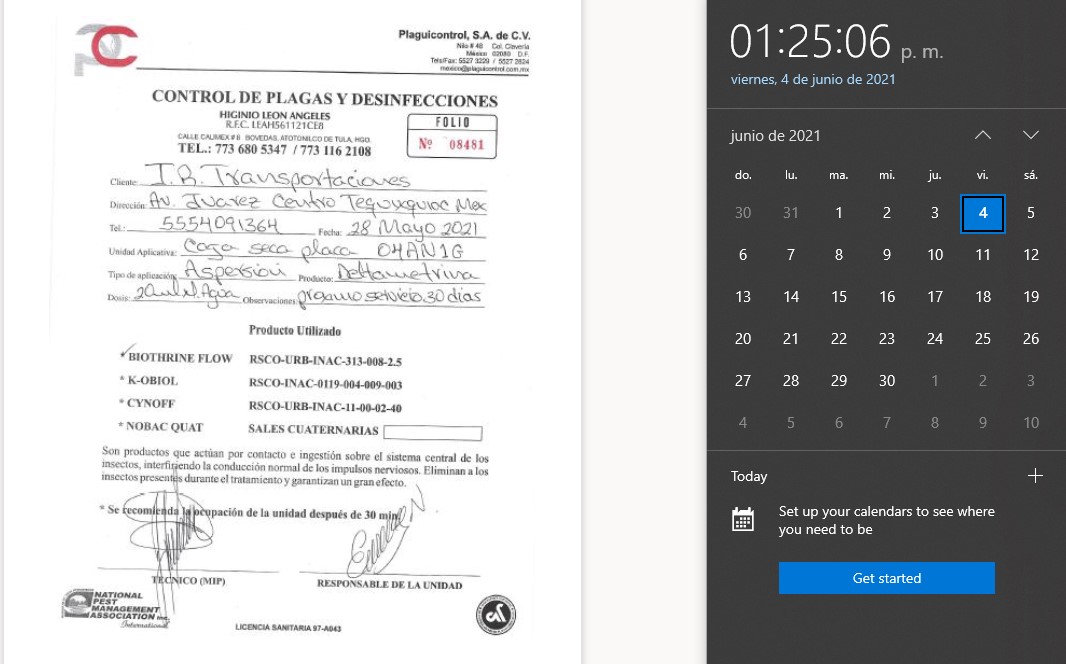 PC
Plaguicontrol, S.A. de C.V.
Nilo # 48 Col. Clavería
México 02080 D.F.
Tels/Fax: 5527 3229 / 5527 2824
mexico@plaguicontrol.com.mx
CONTROL DE PLAGAS Y DESINFECCIONES
HIGINIO LEON ANGELES
R.F.C. LEAH561121CE8
CALLE CALIMEX # 8 BOVEDAS, ATOTONILCO DE TULA, HGO.
TEL.: 773 680 5347 / 773 116 2108
FOLIO
Nº 08481
Cliente: I.R. Transportaciones
Dirección: Av. Juarez Centro Tequixquiac Mex
Tel.: 5554091364 Fecha: 28 Mayo 2021
Unidad Aplicativa: Caja seca placa 04AN1G
Tipo de aplicación: Aspersión Producto: Deltametrina
Dosis: Agua Observaciones: servicio 30 dias
Producto Utilizado
* BIOTHRINE FLOW RSCO-URB-INAC-313-008-2.5
* K-OBIOL RSCO-INAC-0119-004-009-003
* CYNOFF RSCO-URB-INAC-11-00-02-40
* NOBAC QUAT SALES CUATERNARIAS
Son productos que actúan por contacto e ingestión sobre el sistema central de los
insectos, interfiriendo la conducción normal de los impulsos nerviosos. Eliminan a los
insectos presentes durante el tratamiento y garantizan un gran efecto.
* Se recomienda la ocupación de la unidad después de 30 min.
TÉCNICO (MIP)
RESPONSABLE DE LA UNIDAD
NATIONAL
PEST
MANAGEMENT
ASSOCIATION Inc.
International
LICENCIA SANITARIA 97-A043
01:25:06 p. m.
viernes, 4 de junio de 2021
junio de 2021
do. lu. ma. mi. ju. vi. sá.
30 31 1 2 3 4 5
6 7 8 9 10 11 12
13 14 15 16 17 18 19
20 21 22 23 24 25 26
27 28 29 30 1 2 3
4 5 6 7 8 9 10
Today
Set up your calendars to see where
you need to be
Get started